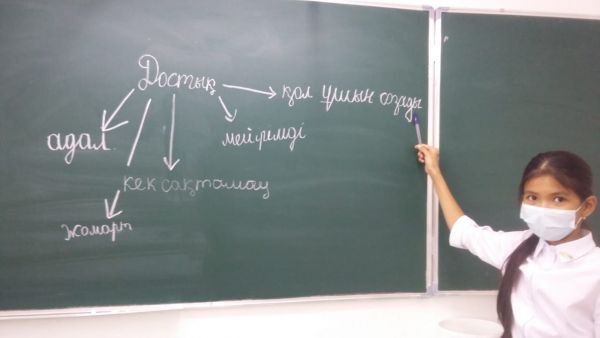 Достық
қол ұшын созады
адал
мейірімді
кек сақтамау
жомарт